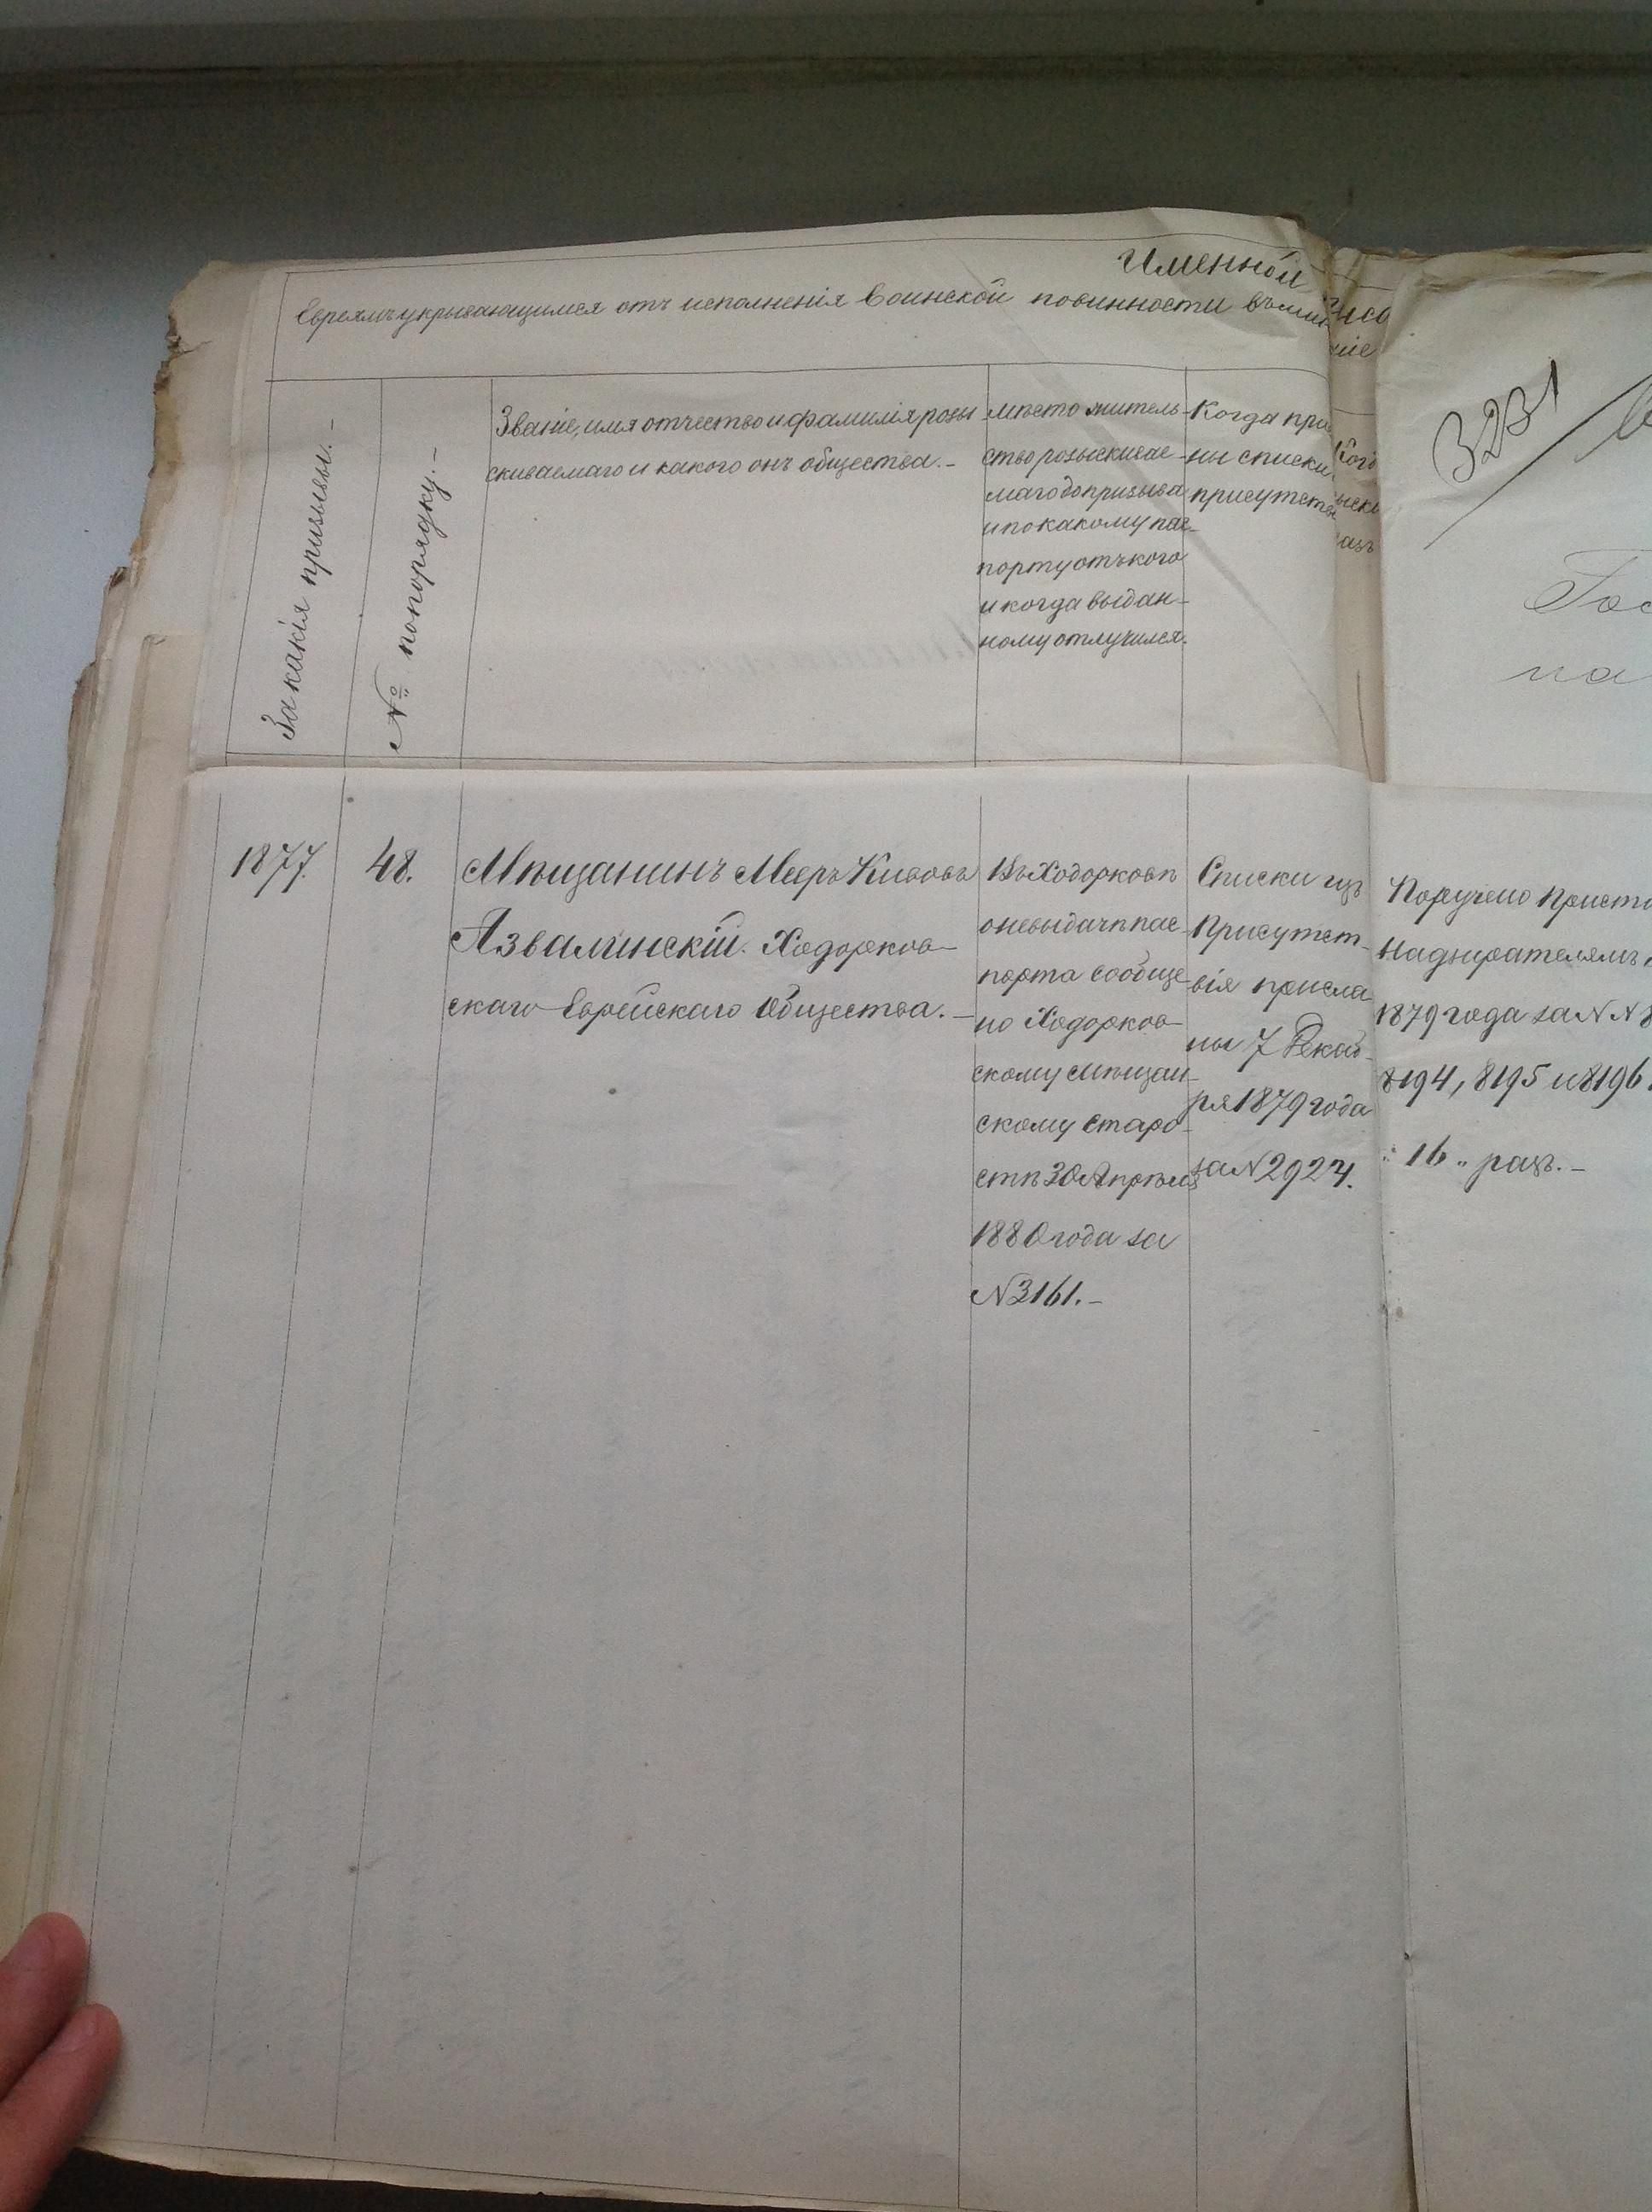 Именной
Евреямъ укрывающимся отъ исполненія воинской повинности
За какія призывы. –
№ по порядку. –
Званіе, имя отчество и фамилія розы
скиваемаго и какого онъ общества. –
мѣсто житель
ство розыскивае
маго до призыва
и по какому пас
порту отъ кого
и когда выдан-
ному отлучился.
Когда при
ны списки
присутств
3231
1877.
48.
Мѣщанинъ Меер Кивовъ
Азвалинскій. Ходорков-
скаго Еврейскаго Общества. –
Въ Ходорковѣ
о невыдачѣ пас-
порта сообще
но Ходорков-
скому мѣщан-
скому старо-
стѣ 30 Апрѣля
1880 года за
№ 3161. –
Списки изъ
Присутст-
вія присла
ны 7 Декаб-
ря 1879 года
за № 2924.
Поручено Приста
Надзирателямъ
1879 года за № №
8194, 8195 и 8196
" 16 " разъ. –